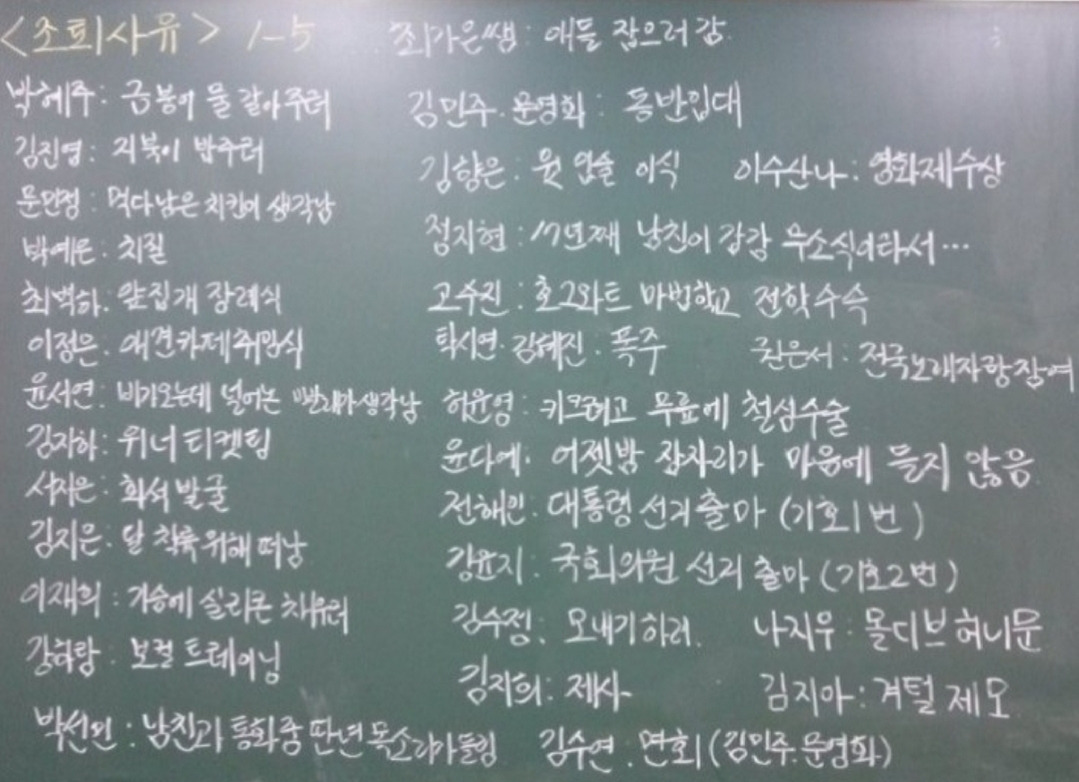 <조퇴사유> 1-5
최가은쌤: 애들 잡으러 감.
박혜주: 금붕어 물 갈아주러
김진영: 거북이 밥주러
문민정: 먹다남은 치킨이 생각남
박예은: 치질
최벽하: 앞집개 장례식
이정은: 애견카페취임식
윤서연: 비가오는데 널어논 빨래가생각남
김자하: 위너티켓팅
서지은: 화석발굴
김지은: 달 착륙위해 떠남
이재희: 가슴에 실리콘 채우러
강하람: 보컬 트레이닝
박선민: 남친과 통화중 딴년목소리가들림
김민주.문영화: 동반입대
김향은: 윗 입술 이식
이수산나: 영화제수상
정지현: 17년째 남친이 감감 무소식이라서…
고수진: 호그와트 마법학교 전학수속
탁시연.김혜진: 폭주
권은서: 전국노래자랑참여
허윤영: 키크려고 무릎에 철심수술
윤다예: 어젯밤 잠자리가 마음에 들지 않음.
전해인: 대통령 선거출마 (기호1번)
강윤지: 국회의원 선거 출마 (기호2번)
김수정: 모내기하러.
나지우: 몰디브허니문
김지희: 제사
김지아: 겨털 제모
김수연: 면회 (김민주.문영화)